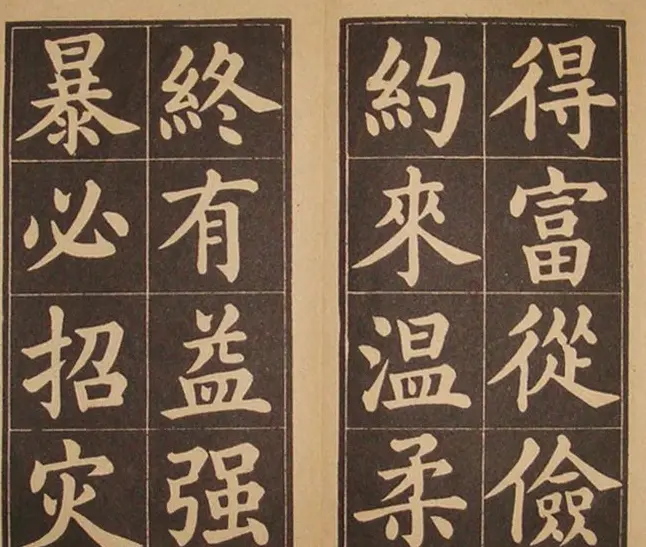 得富從儉
約來温柔
終有益强
暴必招灾